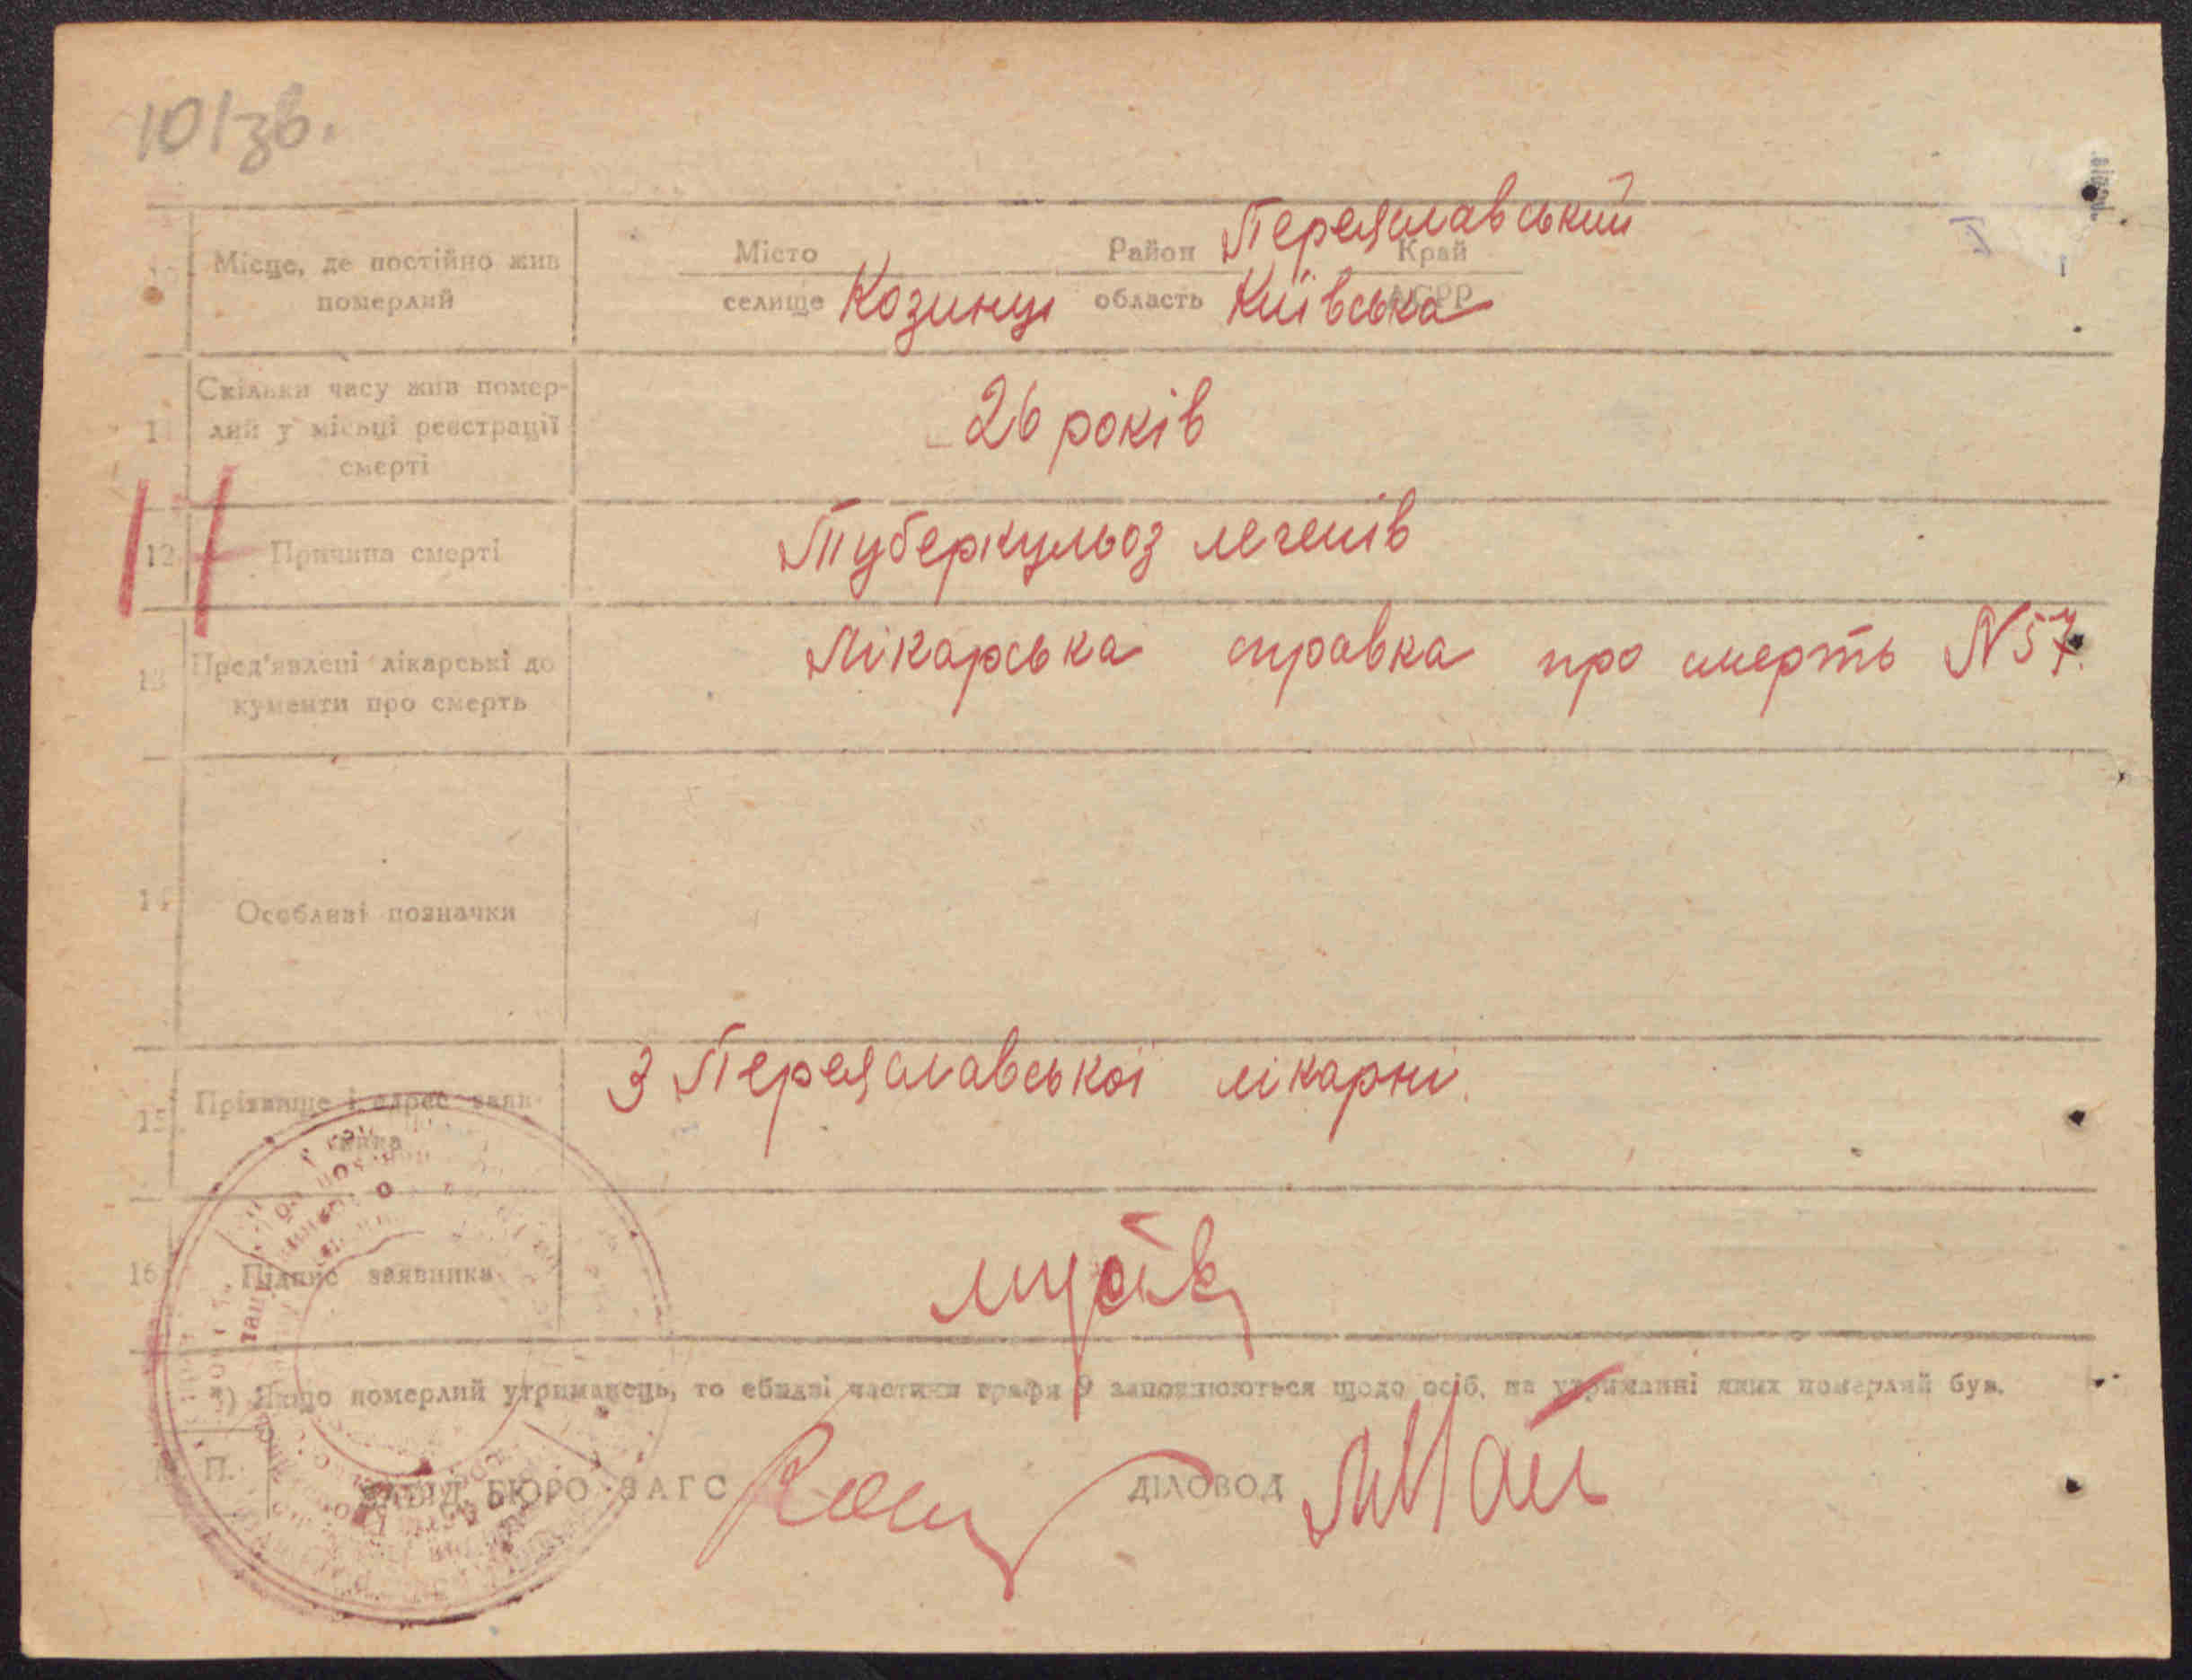 101зв.
Переяславський
Місце, де постійно жив Місто Район Край
померлий селище Козинці область Київська АСРР
Скільки часу жив помер-
11 лий у місьці реєстрації 26 років
смерті
12 Причина смерті Туберкульоз легенів
Лікарська справка про смерть N 57.
13 Пред'явлені лікарські до
кументи про смерть
14 Особливі позначки
З Переяславської лікарні.
15 Прізвище і адрес заяв-
ника
16 Підпис заявника
*) Якщо померлий утриманець, то обидві частини графи 9 заповнюються щодо осіб, на утриманні яких померлий був.
М. П.
ЗАВІД. БЮРО ЗАГС ДІЛОВОД